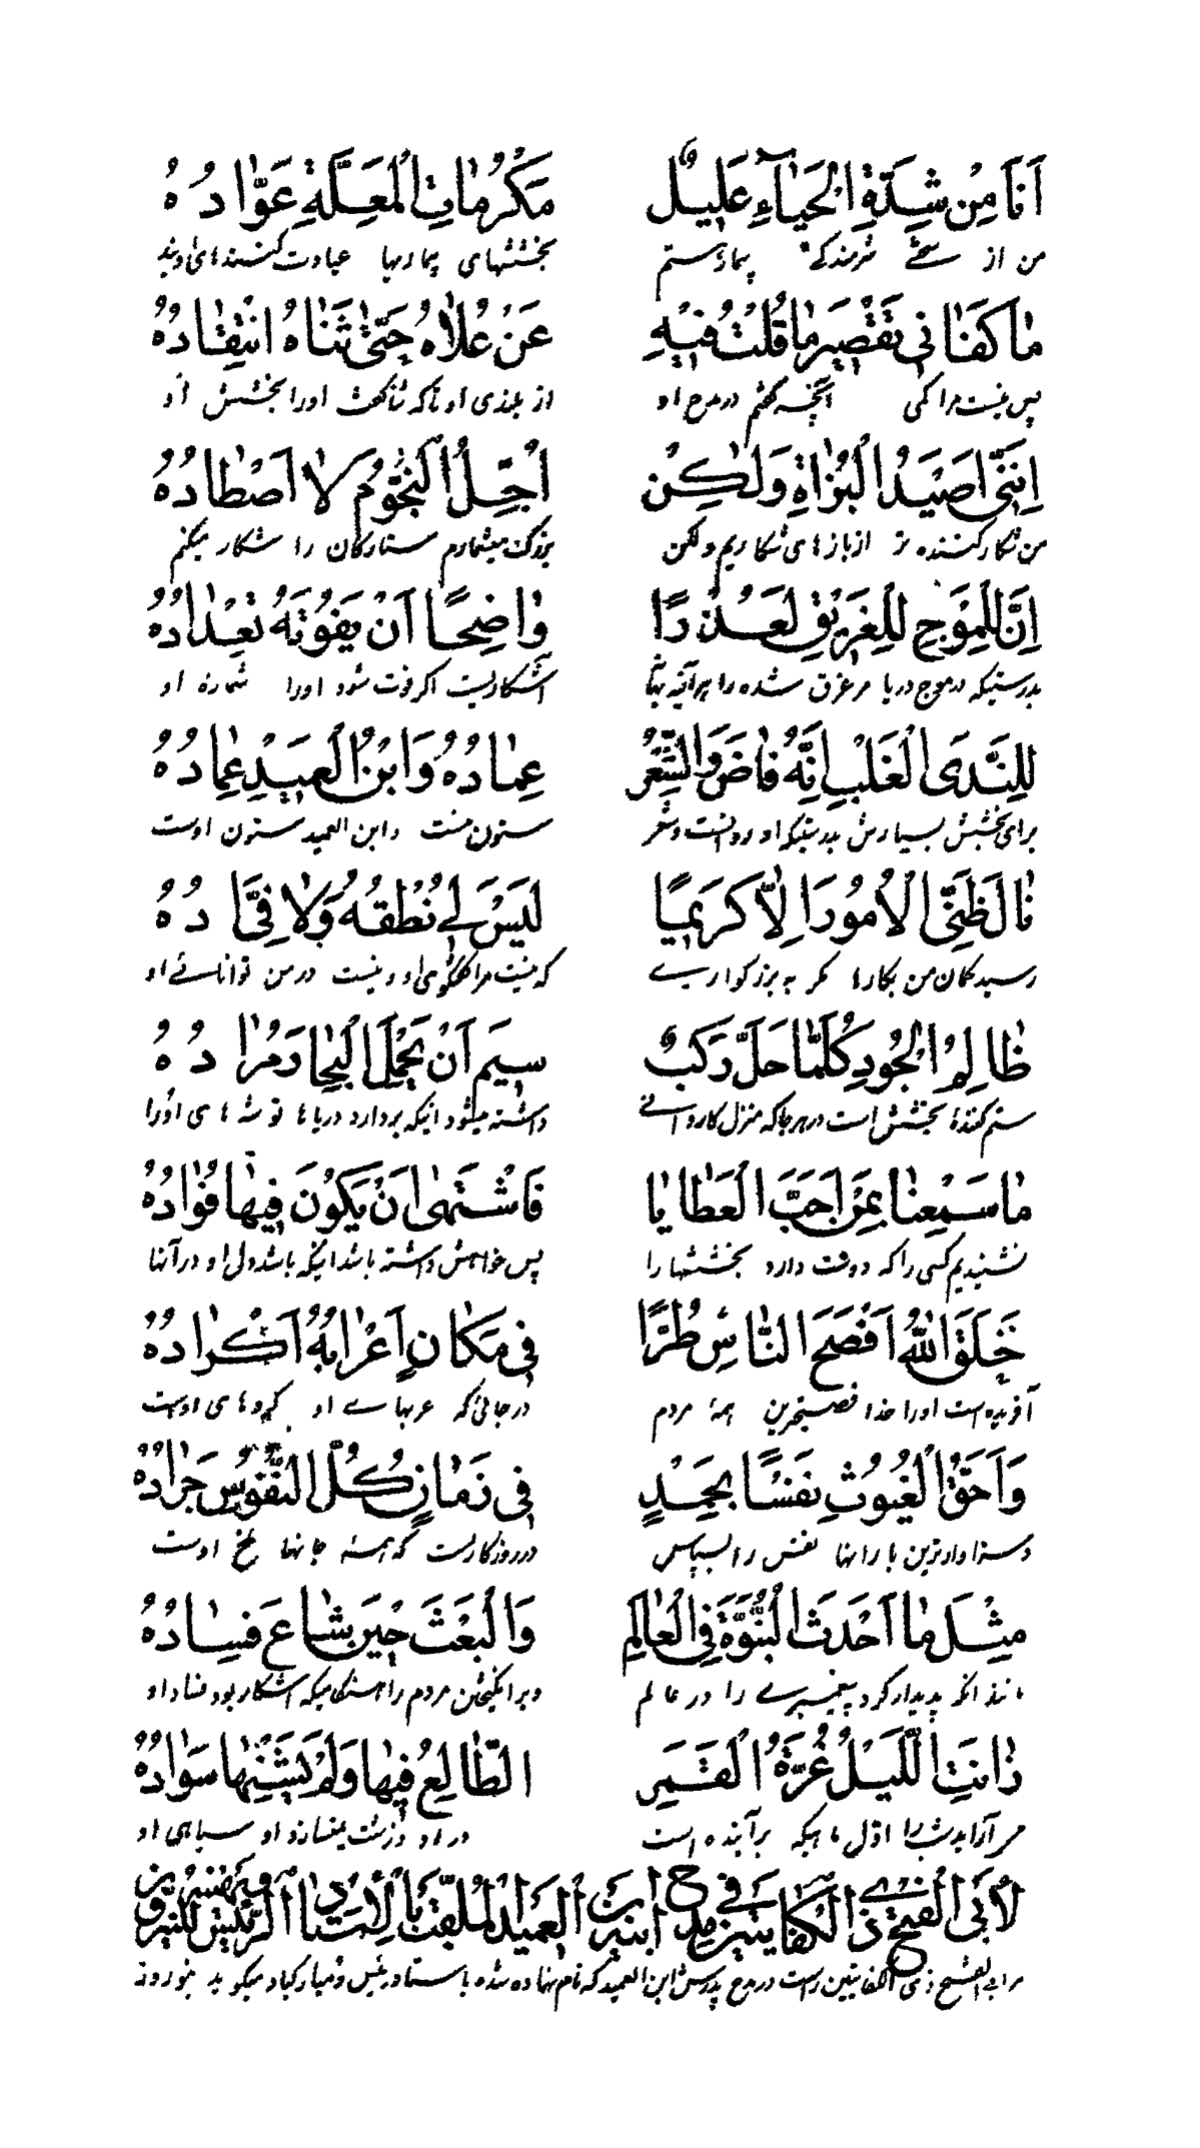 اَنَا مِنْ شِدَّةِ الْحَيَاءِ عَلِيلٌ مَكْرُمَاتِ الْمُعِلَّةِ عَوَّادُهُ
من از سختی شرمندگی بیمارستم بخششهای بیماریها عیادت کنندهای ویند
مَا كَفَانِي تَقْصِيرُ مَا قُلْتُ فِيهِ عَنْ عُلَاهُ حَتَّى ثَنَاهُ انْتِقَادُهُ
پس نیست مرا کمی آنچه گفتم در مدح او از بلندی او تاکه اورا بخشش او
اِنَّنِي اَصْيَدُ الْبُزَاةِ وَلٰكِنْ اَجَلُّ النُّجُومِ لَا اَصْطَادُهُ
من شکار کننده تر از بازهای شکاریم ولکن بزرگ میشمارم ستارگان را شکار میکنم
اِنَّ لِلْمَوْجِ لِلْغَرِيقِ لَعُذْرًا وَاضِحًا اَنْ يَفُوتَهُ تَعْدَادُهُ
بدرستیکه در موج دریا مر غرق شده را هرآینه آشکاریست اگر فوت شود اورا شماره او
لِلنَّدَى الْغَلْبُ اِنَّهُ فَاضَ وَالشِّعْرُ عِمَادُهُ وَابْنُ الْعَمِيدِ عِمَادُهُ
برای بخشش بسیارش بدرستیکه او وشعر ستون منست وابن العمید ستون اوست
نَالَ ظَنِّي الْاُمُورَ اِلَّا كَرِيمًا لَيْسَ لِي نُطْقُهُ وَلَا فِيَّ ادُهُ
رسید گمان من بکارها مگر به بزرگواریے که نیست مرا او و نیست در من توانائے او
ظَالِمُ الْجُودِ كُلَّمَا حَلَّ رَكْبٌ سِيمَ اَنْ يَحْمِلَ الْبِحَارَ مَزَادُهُ
ستم کنندهٔ بخشش است در هر جا که منزل کاروانے داشته میشود اینکه بردارد دریاها توشه های اورا
مَا سَمِعْنَا بِمَنْ اَحَبَّ الْعَطَايَا فَاشْتَهَى اَنْ يَكُونَ فِيهَا فُؤَادُهُ
نشنیدیم کسی را که دوست دارد بخششها را پس خواهش داشته باشد اینکه باشد دل او در آنها
خَلَقَ اللّٰهُ اَفْصَحَ النَّاسِ طُرًّا فِي مَكَانٍ اَعْرَابُهُ اَكْرَادُهُ
آفریده است اورا خدا فصیحترین همهٔ مردم در جائی که عربهاے او کردهای اوست
وَاَحَقَّ الْغُيُوثِ نَفْسًا بِحَمْدٍ فِي زَمَانٍ كُلُّ النُّفُوسِ جَرَادُهُ
وسزاوارترین بارانها نفس را بسپاس در روزگاریست که همهٔ جانها ملخ اوست
مِثْلَ مَا اَحْدَثَ النُّبُوَّةَ فِي الْعَالَمِ وَالْبَعْثَ حِينَ شَاعَ فَسَادُهُ
مانند آنکه پدیدار کرد پیغمبرے را در عالم وبرانگیختن مردم را هنگامیکه آشکار بود فساد او
زَانَتِ اللَّيْلَ غُرَّةُ الْقَمَرِ الطَّالِعِ فِيهَا وَلَمْ يَشِنْهَا سَوَادُهُ
مر آرا شب را اول ماهیکه برآینده است در او وزشت نینداز د او سیاهی او
لِاَبِي الْفَتْحِ ذِي الْكِفَايَتَيْنِ فِي مَدْحِ اَبِيهِ ابْنِ الْعَمِيدِ الْمُلَقَّبِ بِالْاُسْتَادِ الرَّئِيسِ وَيُهَنِّيهِ لِلنَّيْرُوزِ
مر ابی الفتح ذی الکفایتین راست در مدح پدرش ابن العمید که نام نهاده شده باستاد رئیس ومبارکباد میگوید بنوروز